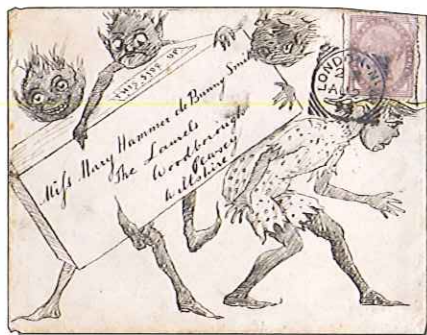 THIS SIDE UP
Miss Mary Hammer de Bunny Smith
The Laurels
Woodborough
Pewsey
Wiltshire
LONDON
2
JA